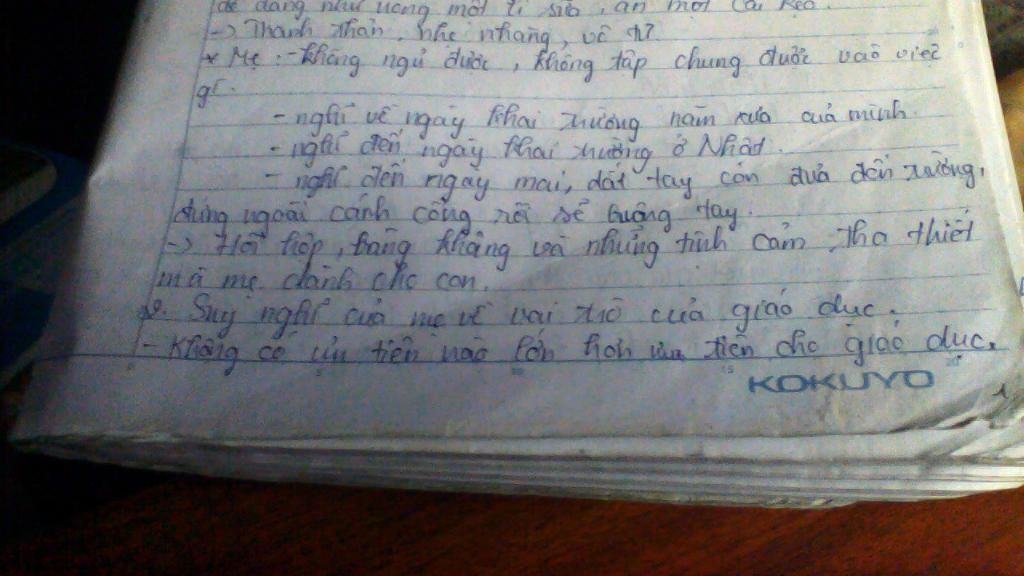 dễ dàng như uống một li sữa, ăn một cái kẹo.
-> Thanh thản, nhẹ nhàng, vô tư
* Mẹ: - không ngủ được, không tập chung được vào việc
gì.
- nghĩ về ngày khai trường năm xưa của mình.
- nghĩ đến ngày khai trường ở Nhật.
- nghĩ đến ngày mai, dắt tay con đưa đến trường,
đứng ngoài cánh cổng rồi sẽ buông tay.
-> Hồi hộp, bâng khâng và những tình cảm tha thiết
mà mẹ dành cho con.
2. Suy nghĩ của mẹ về vai trò của giáo dục.
- Không có ưu tiên nào lớn hơn ưu tiên cho giáo dục.
KOKUYO